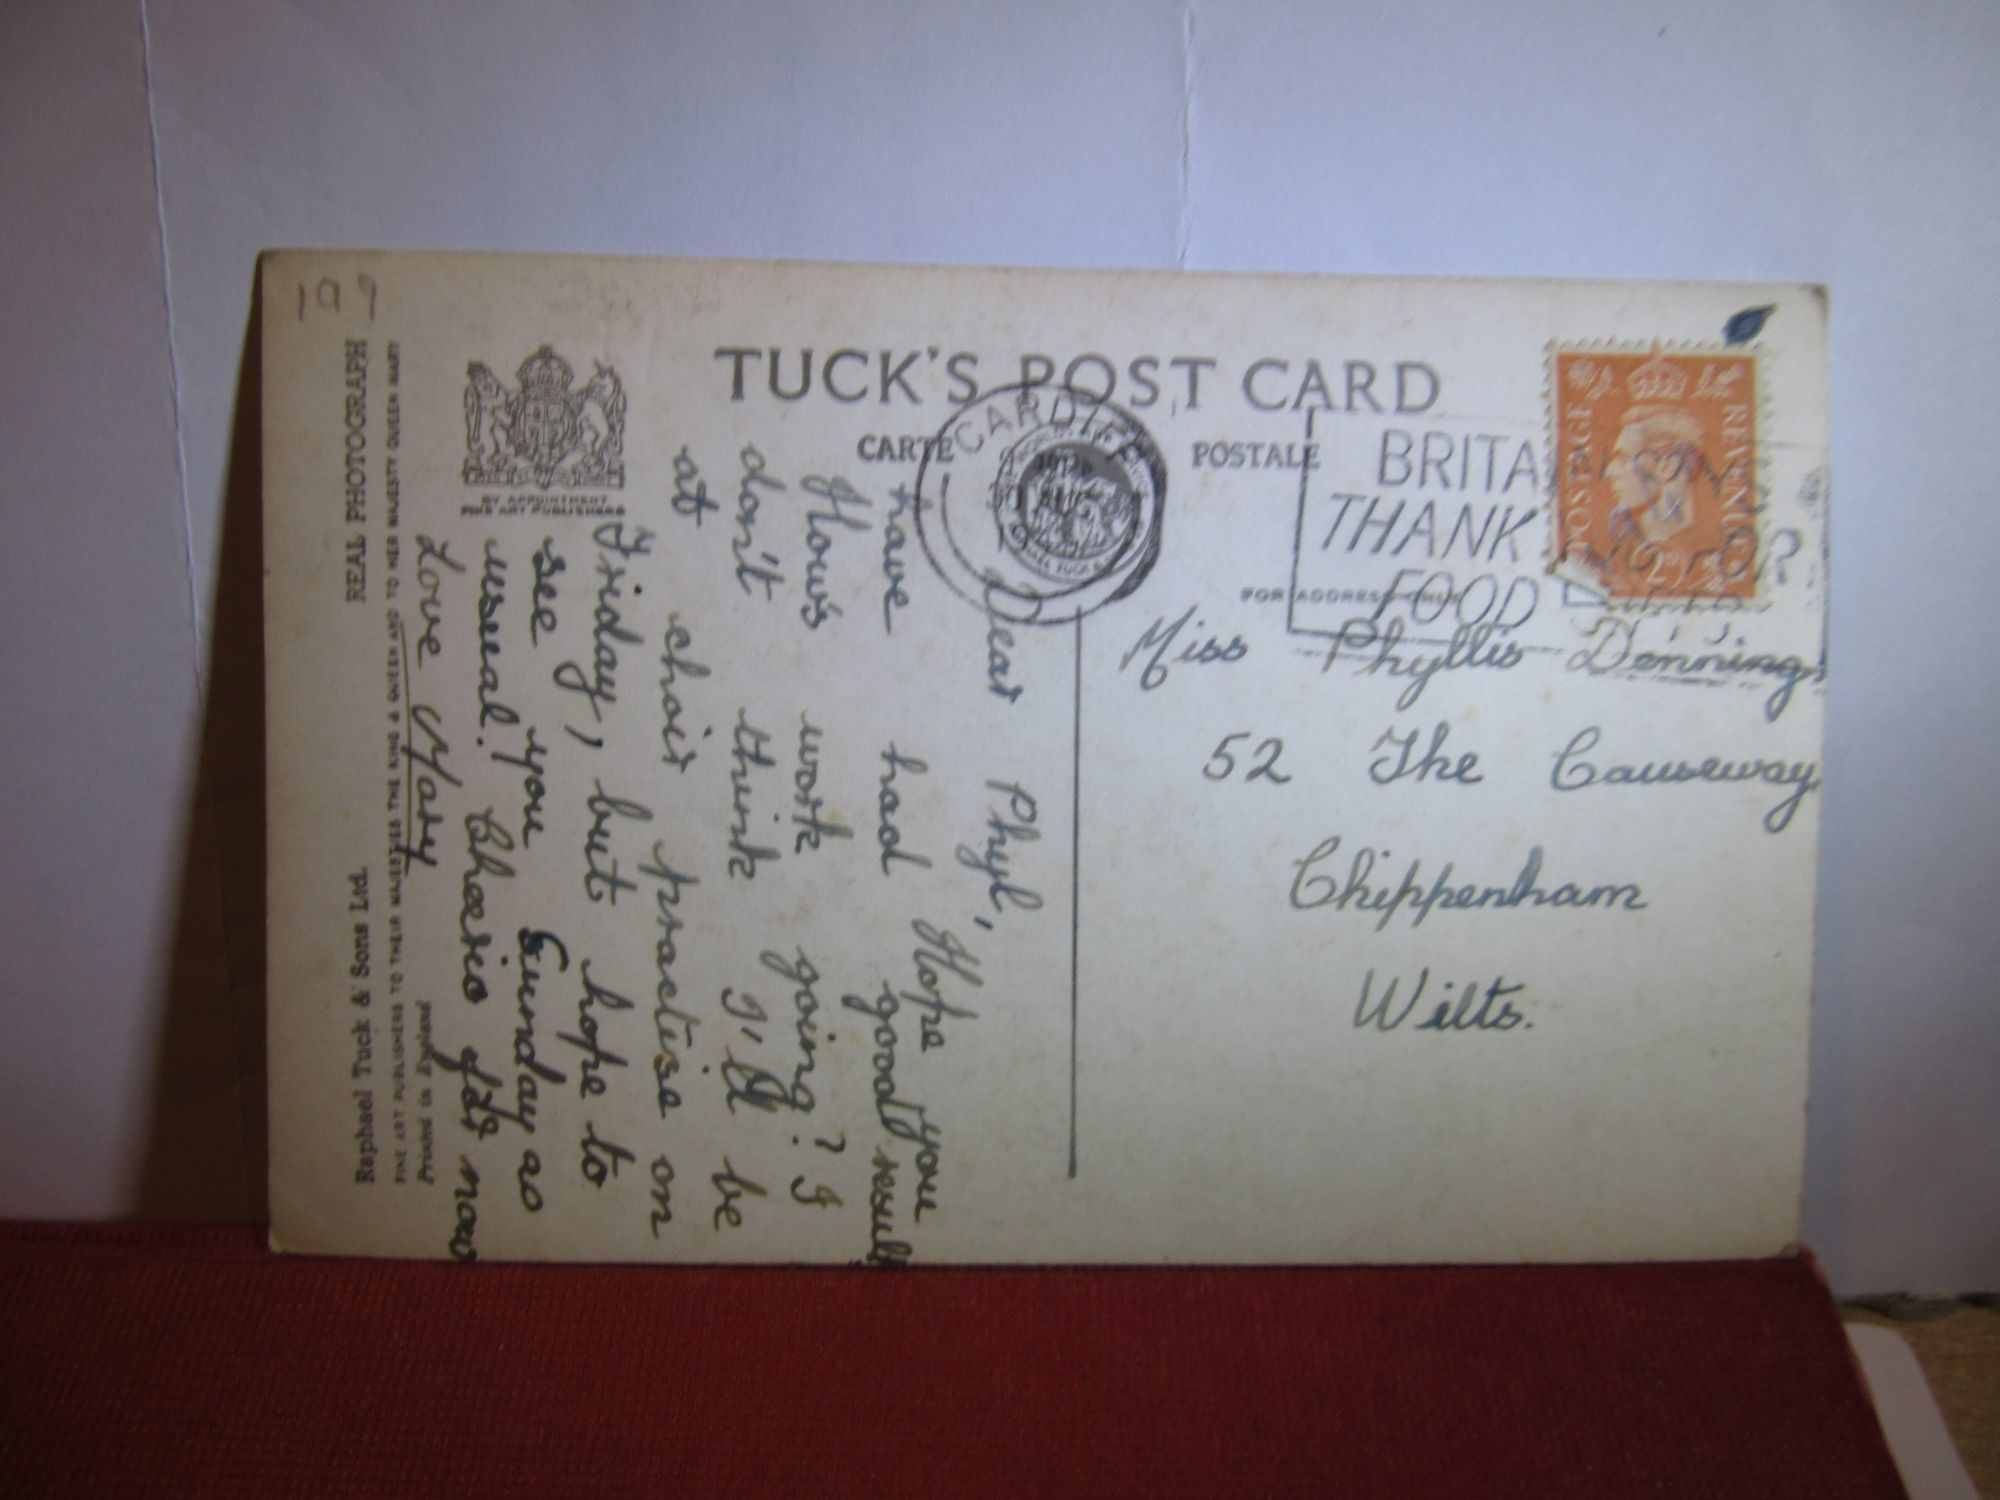 TUCK'S POST CARD
CARTE POSTALE
FOR ADDRESS ONLY
CARDIFF
BRITA
THANK
FOOD
POSTAGE REVENUE
Miss Phyllis Denning
52 The Causeway
Chippenham
Wilts.
Dear Phyl, Hope you
have had good result
How's work going? I
don't think I'll be
at choir practise on
Friday, but hope to
see you Sunday as
usual. Cheerio for now
Love Mary
BY APPOINTMENT
FINE ART PUBLISHERS
REAL PHOTOGRAPH Raphael Tuck & Sons Ltd.
FINE ART PUBLISHERS TO THEIR MAJESTIES THE KING & QUEEN AND TO HER MAJESTY QUEEN MARY
Printed in England